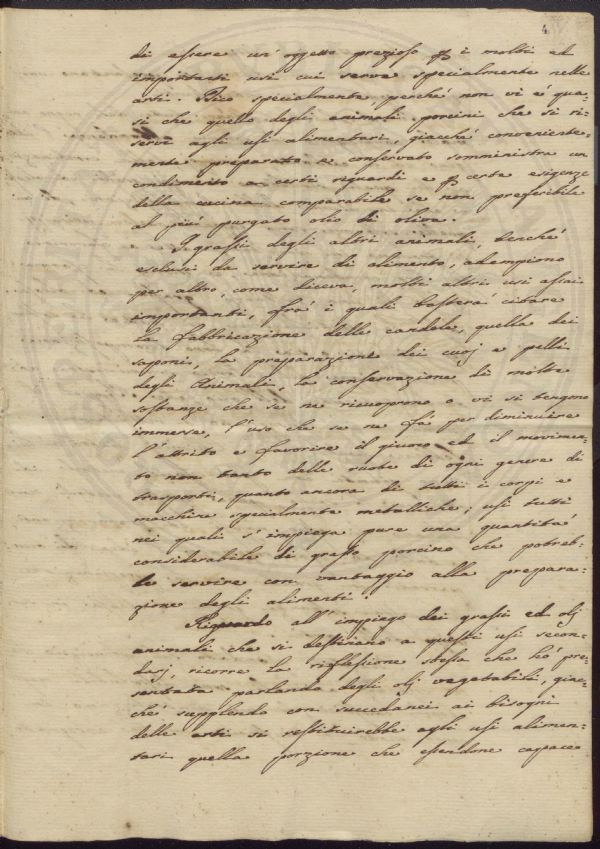 4
di essere un' oggetto prezioso p i molti ed
importanti usi cui serve specialmente nelle
arti. Dico specialmente, perché non vi è qua=
si che quello degli animali porcini che si ri=
servi agli usi alimentari, giacché conveniente=
mente preparato e conservato somministra un
condimento a certi riguardi e p certe esigenze
della cucina comparabile se non preferibile
al più purgato olio di oliva.
I grassi degli altri animali, benché
esclusi da servire di alimento, adempiono
per altro, come diceva, molti altri usi assai
importanti, frà i quali basterà citare
la fabbricazione delle candele, quella dei
saponi, la preparazione dei cuoj e pelli
degli animali, la conservazione di molte
sostanze che se ne ricuoprono o vi si tengono
immerse, l'uso che se ne fà per diminuire
l'attrito e favorire il giuoco ed il movimen=
to non tanto delle ruote di ogni genere di
trasporti, quanto ancora di tutti i corpi e
macchine specialmente metalliche; usi tutti
nei quali s'impiega pure una quantità
considerabile di grasso porcino che potreb=
be servire con vantaggio alla prepara=
zione degli alimenti.
Riguardo all' impiego dei grassi ed olj
animali che si destinano a questi usi secon=
darj, ricorre la riflessione stessa che hò pre=
sentata parlando degli olj vegetabili, giac=
ché supplendo con succedanei ai bisogni
delle arti si restituirebbe agli usi alimen=
tari quella porzione che essendone capace